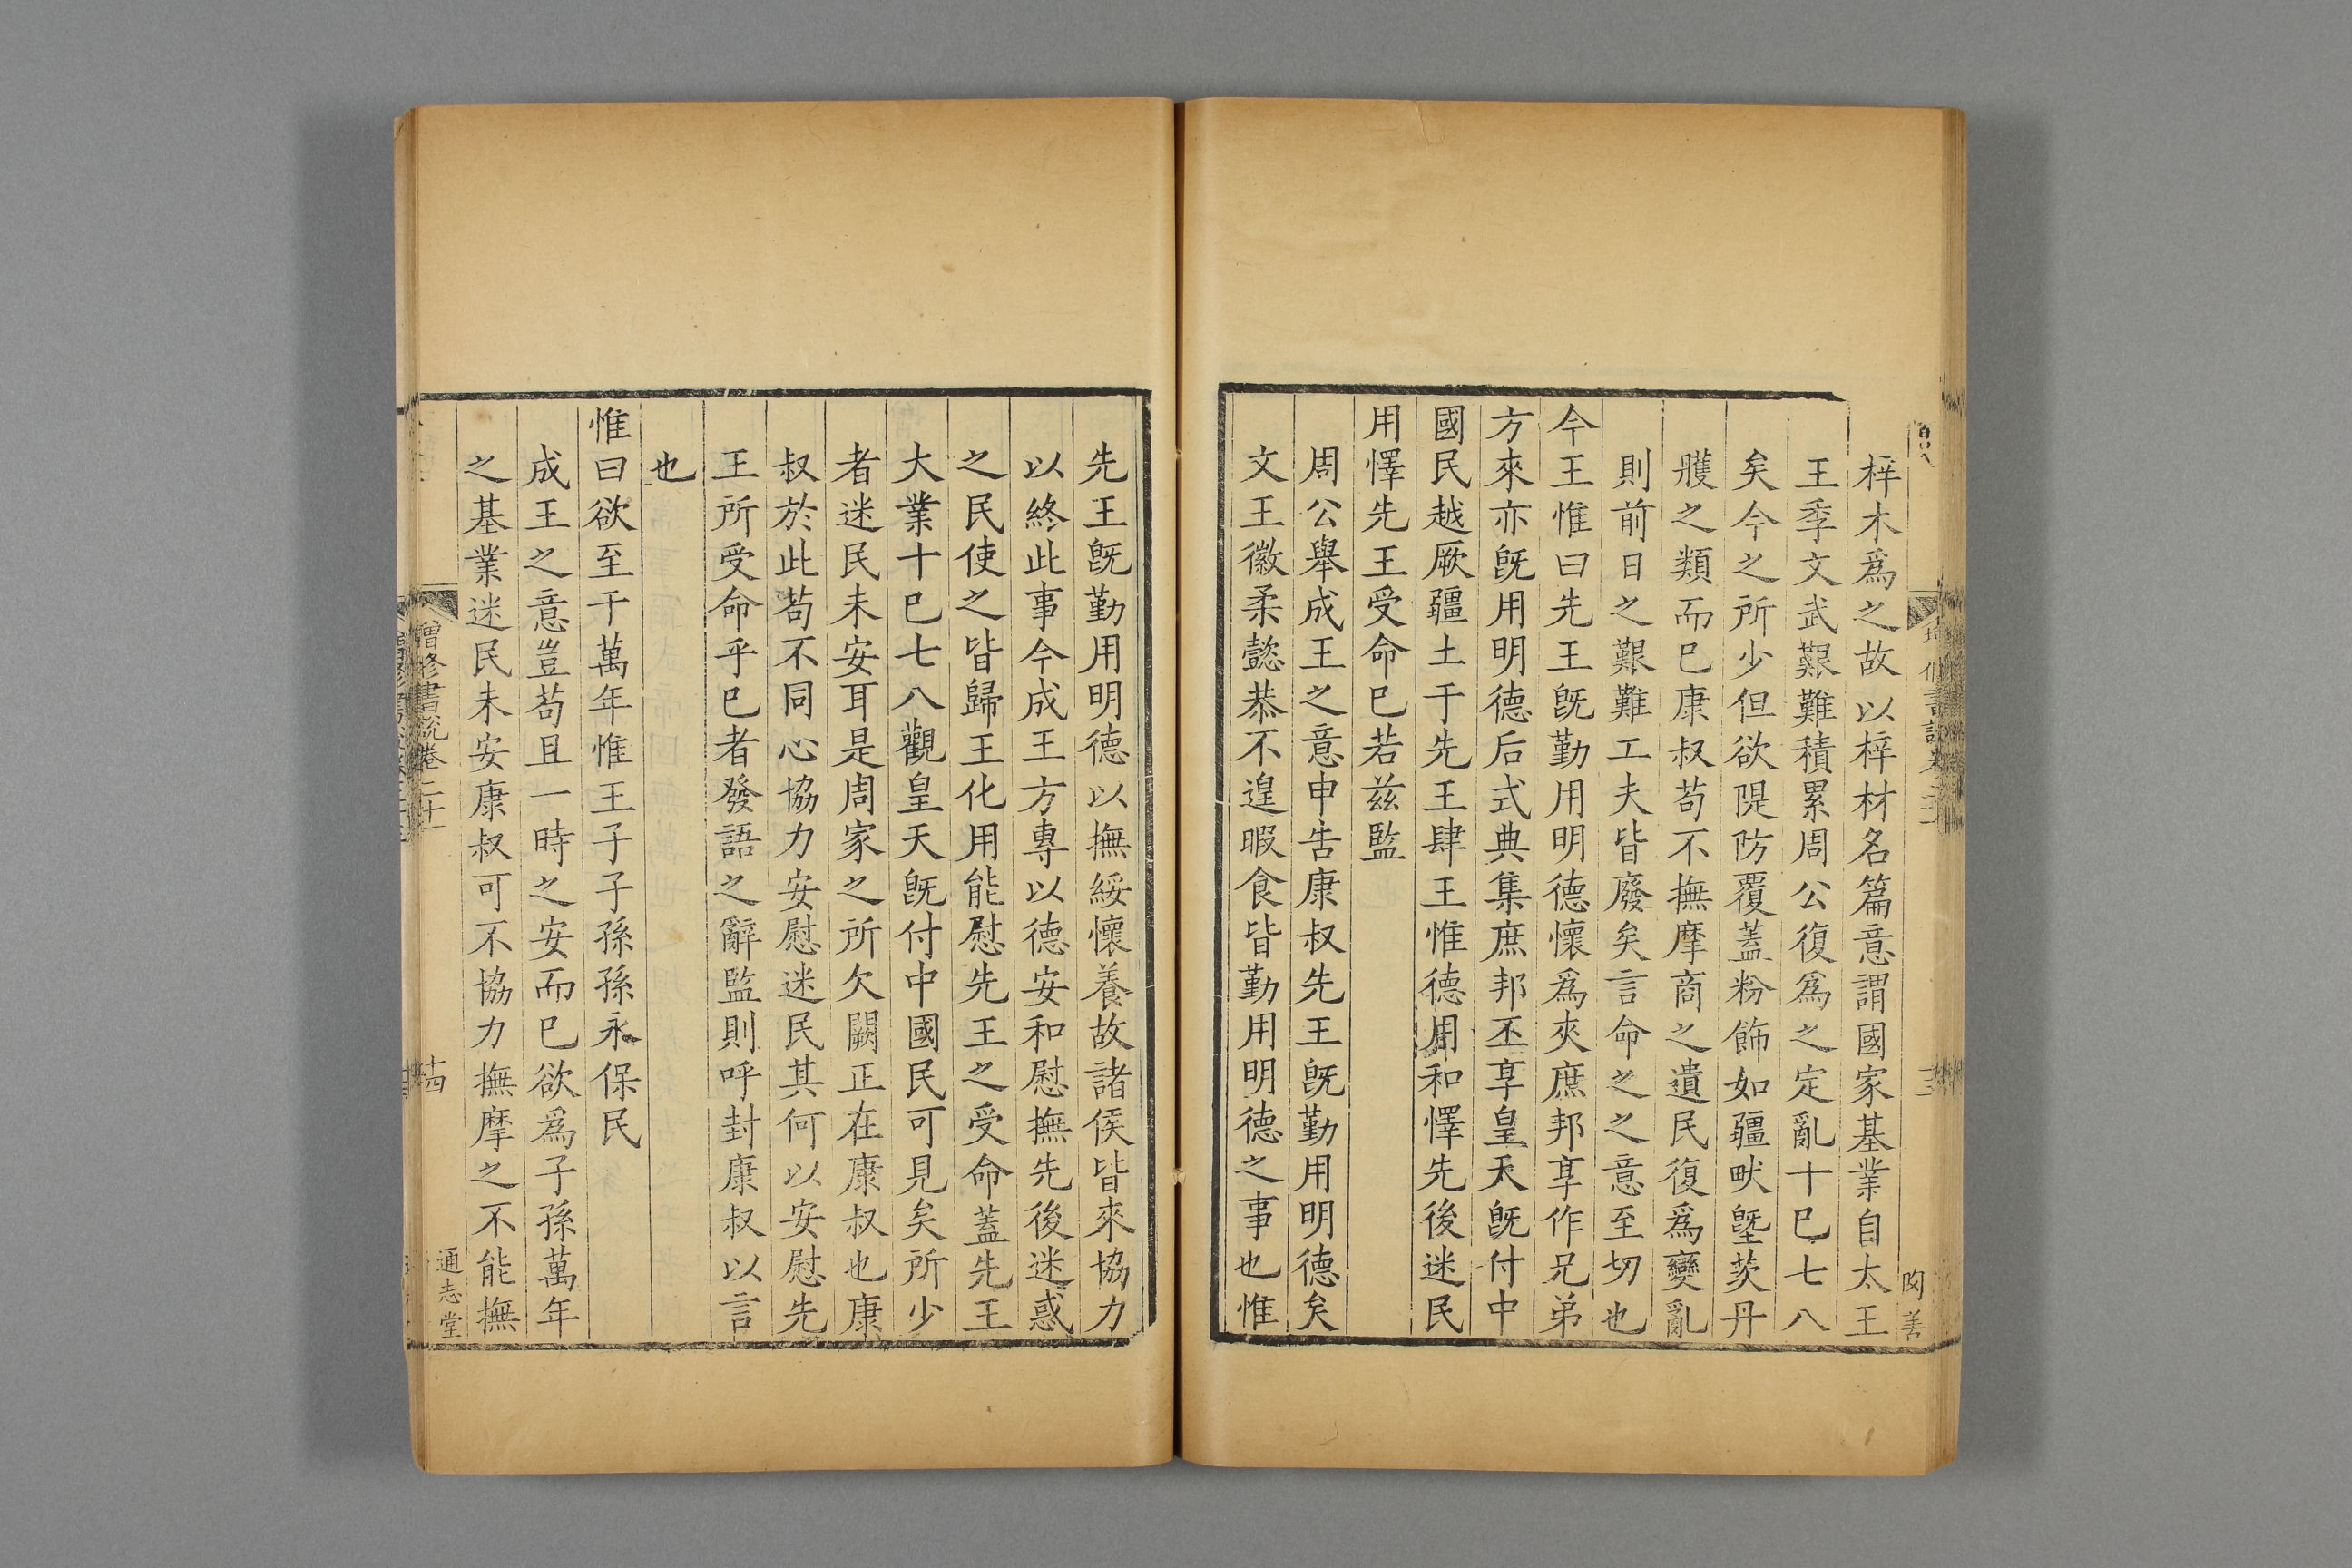 梓木爲之故以梓材名篇意謂國家基業自太王
王季文武艱難積累周公復爲之定亂十巳七八
矣今之所少但欲隄防覆蓋粉飾如疆畎墍茨丹
雘之類而巳康叔苟不撫摩商之遺民復爲變亂
則前日之艱難工夫皆廢矣言命之之意至切也
今王惟曰先王旣勤用明德懷爲夾庶邦享作兄弟
方來亦旣用明德后式典集庶邦丕享皇天旣付中
國民越厥疆土于先王肆王惟德用和懌先後迷民
用懌先王受命巳若茲監
周公舉成王之意申告康叔先王旣勤用明德矣
文王徽柔懿恭不遑暇食皆勤用明德之事也惟
先王旣勤用明德以撫綏懷養故諸侯皆來協力
以終此事今成王方專以德安和慰撫先後迷惑
之民使之皆歸王化用能慰先王之受命蓋先王
大業十巳七八觀皇天旣付中國民可見矣所少
者迷民未安耳是周家之所欠闕正在康叔也康
叔於此苟不同心協力安慰迷民其何以安慰先
王所受命乎巳者發語之辭監則呼封康叔以言
也
惟曰欲至于萬年惟王子子孫孫永保民
成王之意豈苟且一時之安而巳欲爲子孫萬年
之基業迷民未安康叔可不協力撫摩之不能撫
增修書說卷二十一
十四
通志堂